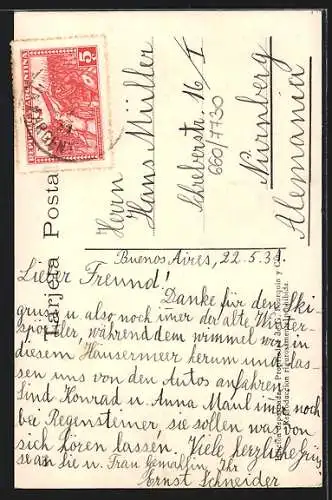 REPUBLICA ARGENTINA
5
Tarjeta Postal
Herrn
Hans Müller
Schreberstr. 16/I
660/7730
Nürnberg
Alemania
Buenos Aires, 22.5.31.
Lieber Freund!
Danke für den Ski-
gruss u. also noch imer der alte Winter-
sportler, während dem wimmel wir in
diesem Häusermeer herum und las-
sen uns von den Autos anfahren.
Sind Konrad u. Anna Maul imer noch
bei Regensteiner, sie sollen was von
sich hören lassen. Viele herzliche Grüs-
se an Sie u. Frau Gemahlin, Ihr
Ernst Schneider